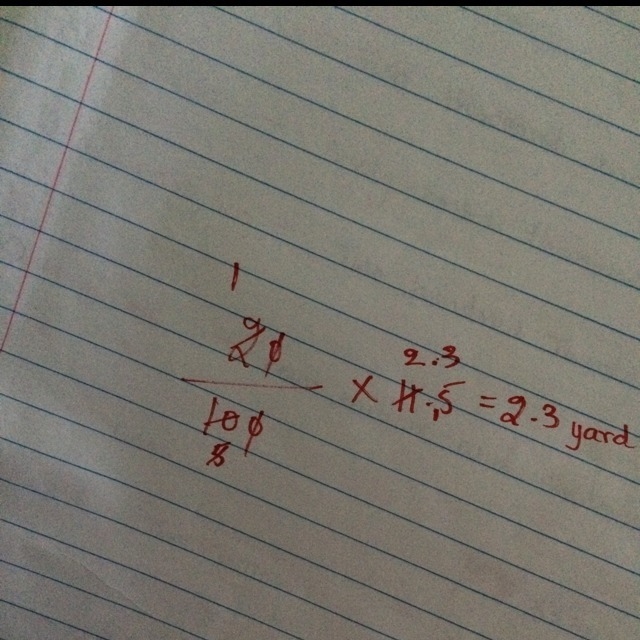 1
2
20
2.3
× 11.5 = 2.3 yard
100
5